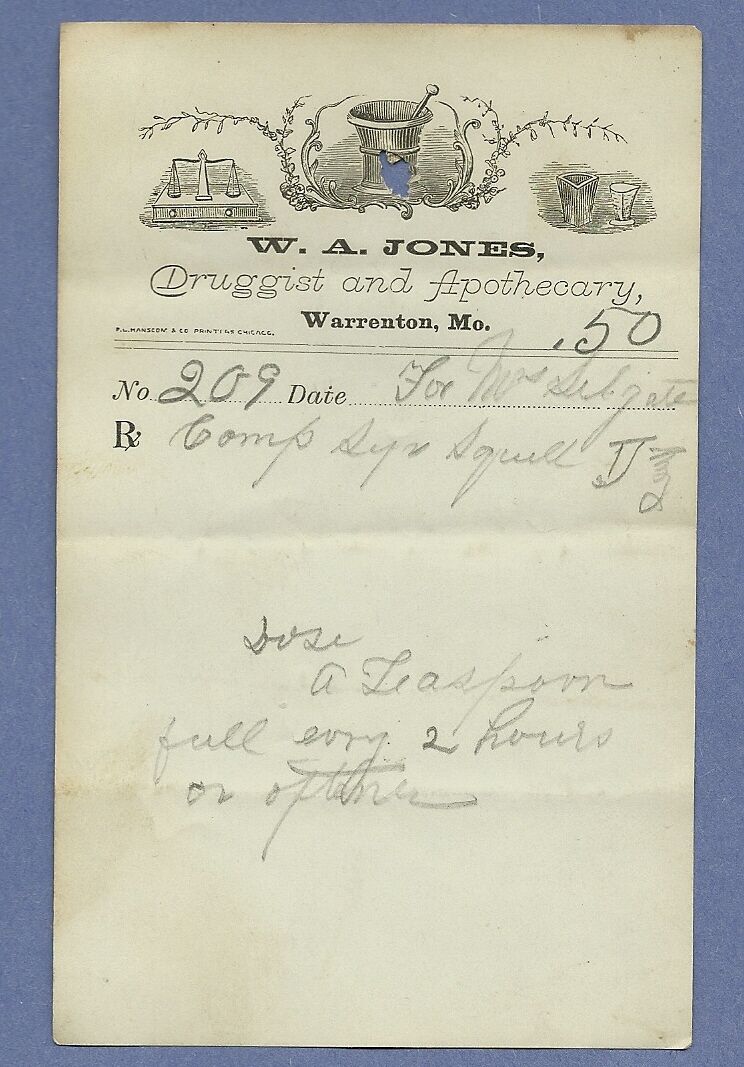 W. A. JONES,
Druggist and Apothecary,
Warrenton, Mo.
P. L. HANSCOM & CO PRINTERS CHICAGO.
.50
No. 209 Date For Mrs
℞ Comp Syr Squill
Dose
a Teaspoon
full evry 2 hours
or oftener